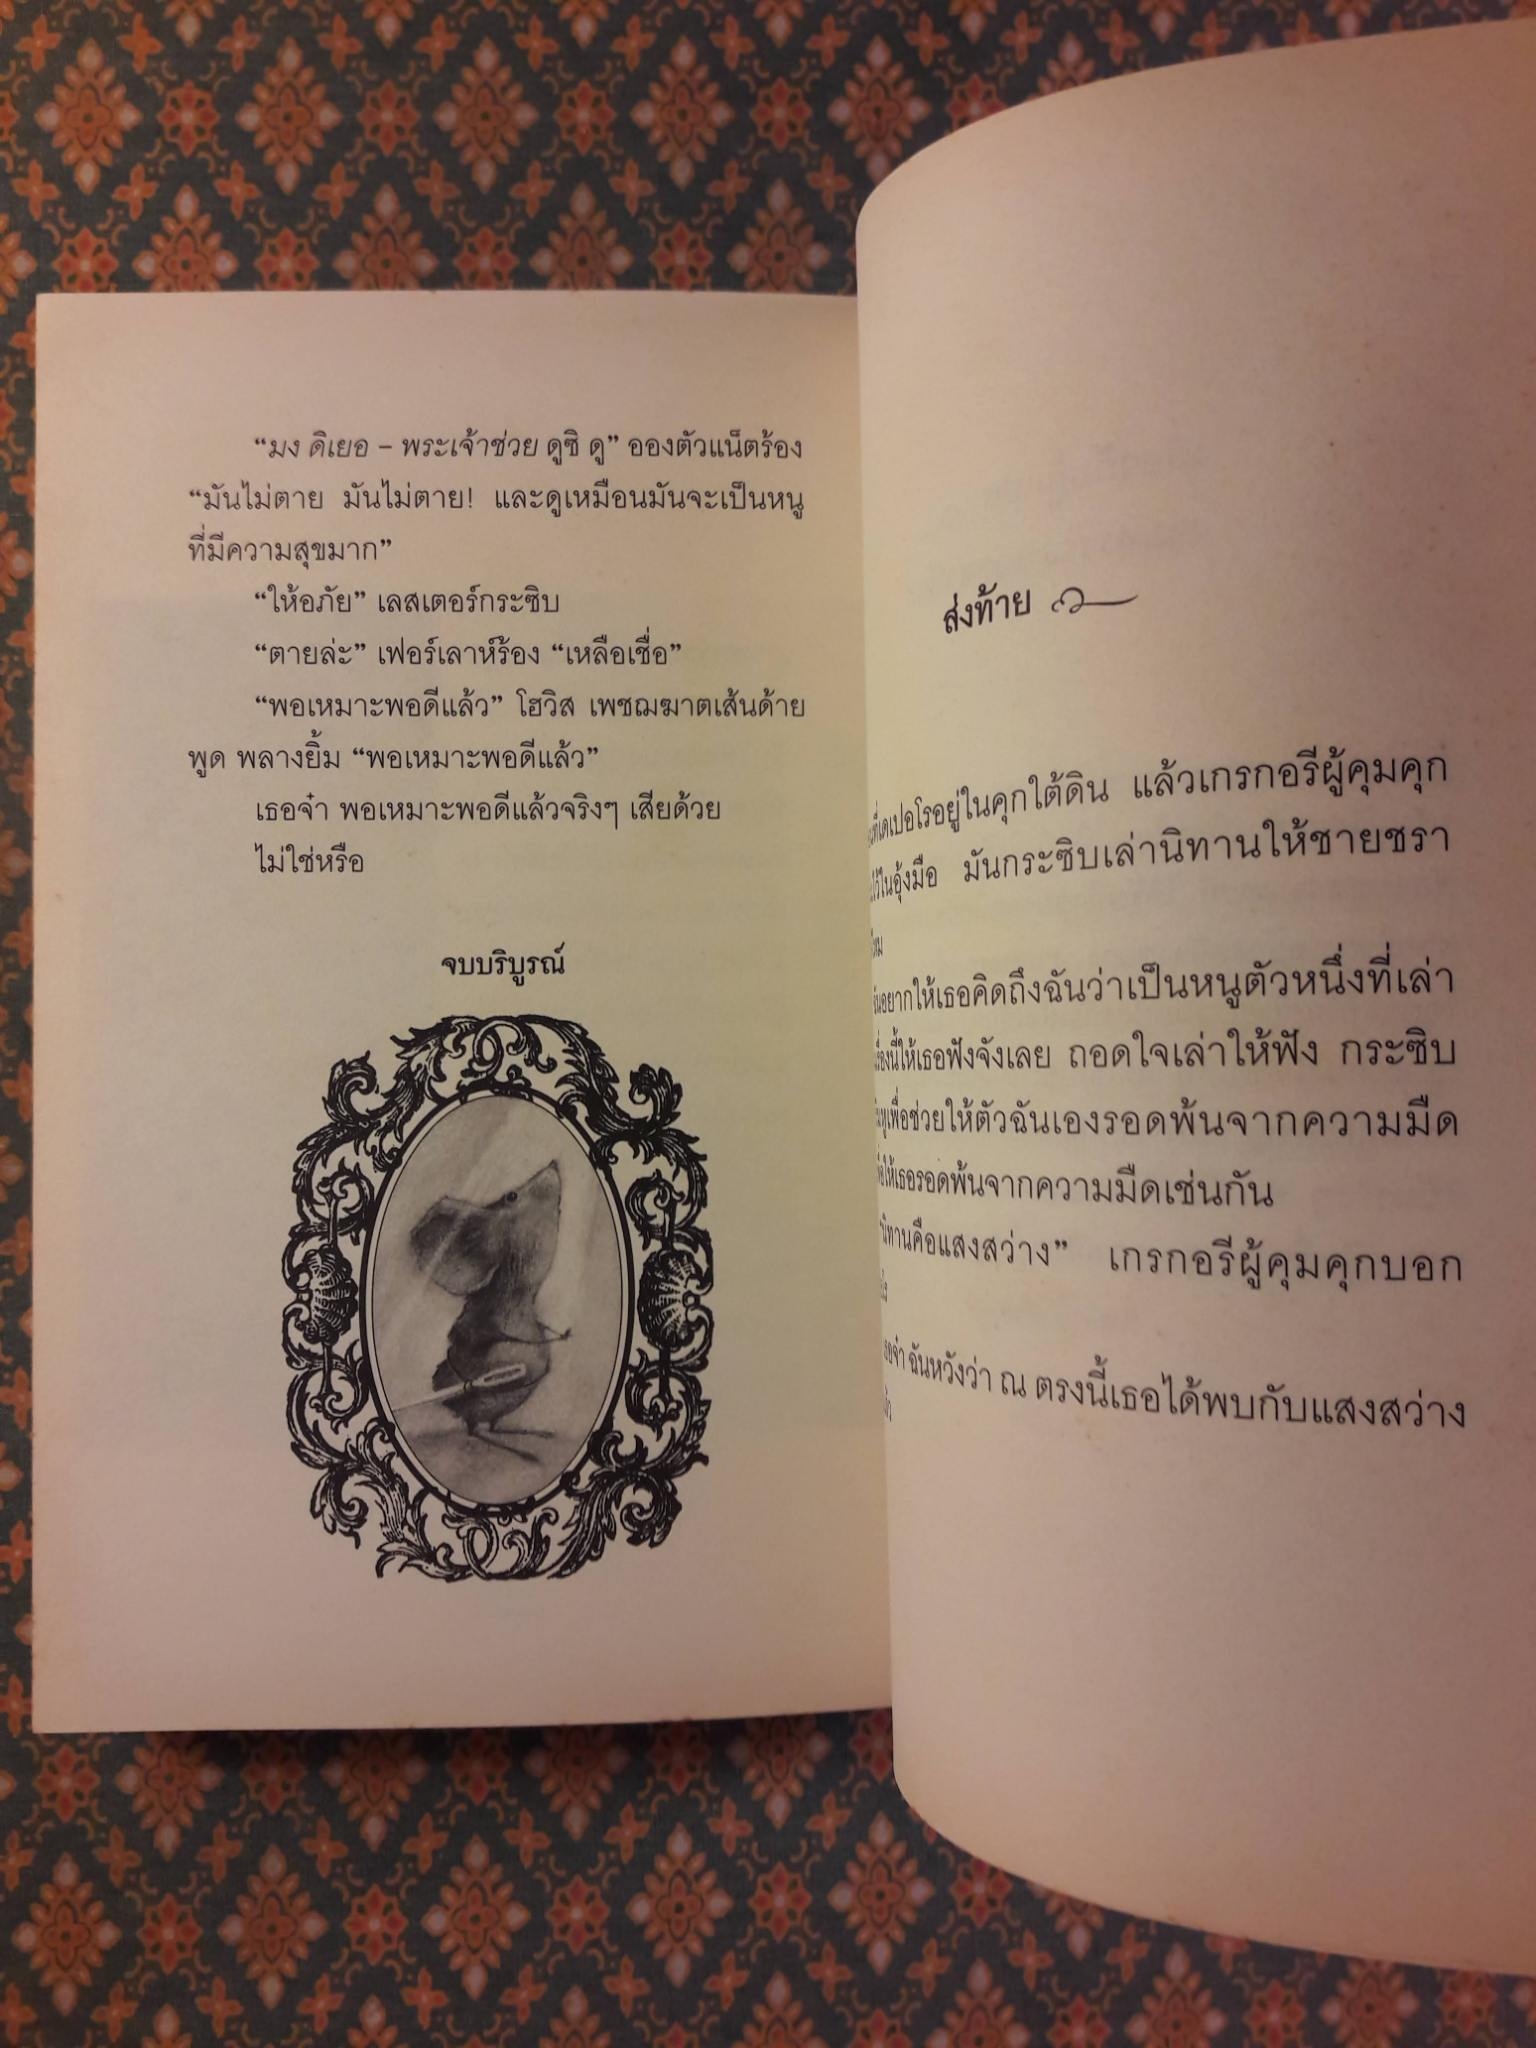 “มง ดิเยอ – พระเจ้าช่วย ดูซิ ดู” อองตัวแน็ตร้อง
“มันไม่ตาย มันไม่ตาย! และดูเหมือนมันจะเป็นหนู
ที่มีความสุขมาก”
“ให้อภัย” เลสเตอร์กระซิบ
“ตายล่ะ” เฟอร์เลาห์ร้อง “เหลือเชื่อ”
“พอเหมาะพอดีแล้ว” โฮวิส เพชฌฆาตเส้นด้าย
พูด พลางยิ้ม “พอเหมาะพอดีแล้ว”
เธอจ๋า พอเหมาะพอดีแล้วจริงๆ เสียด้วย
ไม่ใช่หรือ
จบบริบูรณ์
ส่งท้าย
ที่เดเปอโรอยู่ในคุกใต้ดิน แล้วเกรกอรีผู้คุมคุก
ไว้ในอุ้งมือ มันกระซิบเล่านิทานให้ชายชรา
อยากให้เธอคิดถึงฉันว่าเป็นหนูตัวหนึ่งที่เล่า
เรื่องนี้ให้เธอฟังจังเลย ถอดใจเล่าให้ฟัง กระซิบ
เพื่อช่วยให้ตัวฉันเองรอดพ้นจากความมืด
ให้เธอรอดพ้นจากความมืดเช่นกัน
“นิทานคือแสงสว่าง” เกรกอรีผู้คุมคุกบอก
เธอจ๋า ฉันหวังว่า ณ ตรงนี้เธอได้พบกับแสงสว่าง